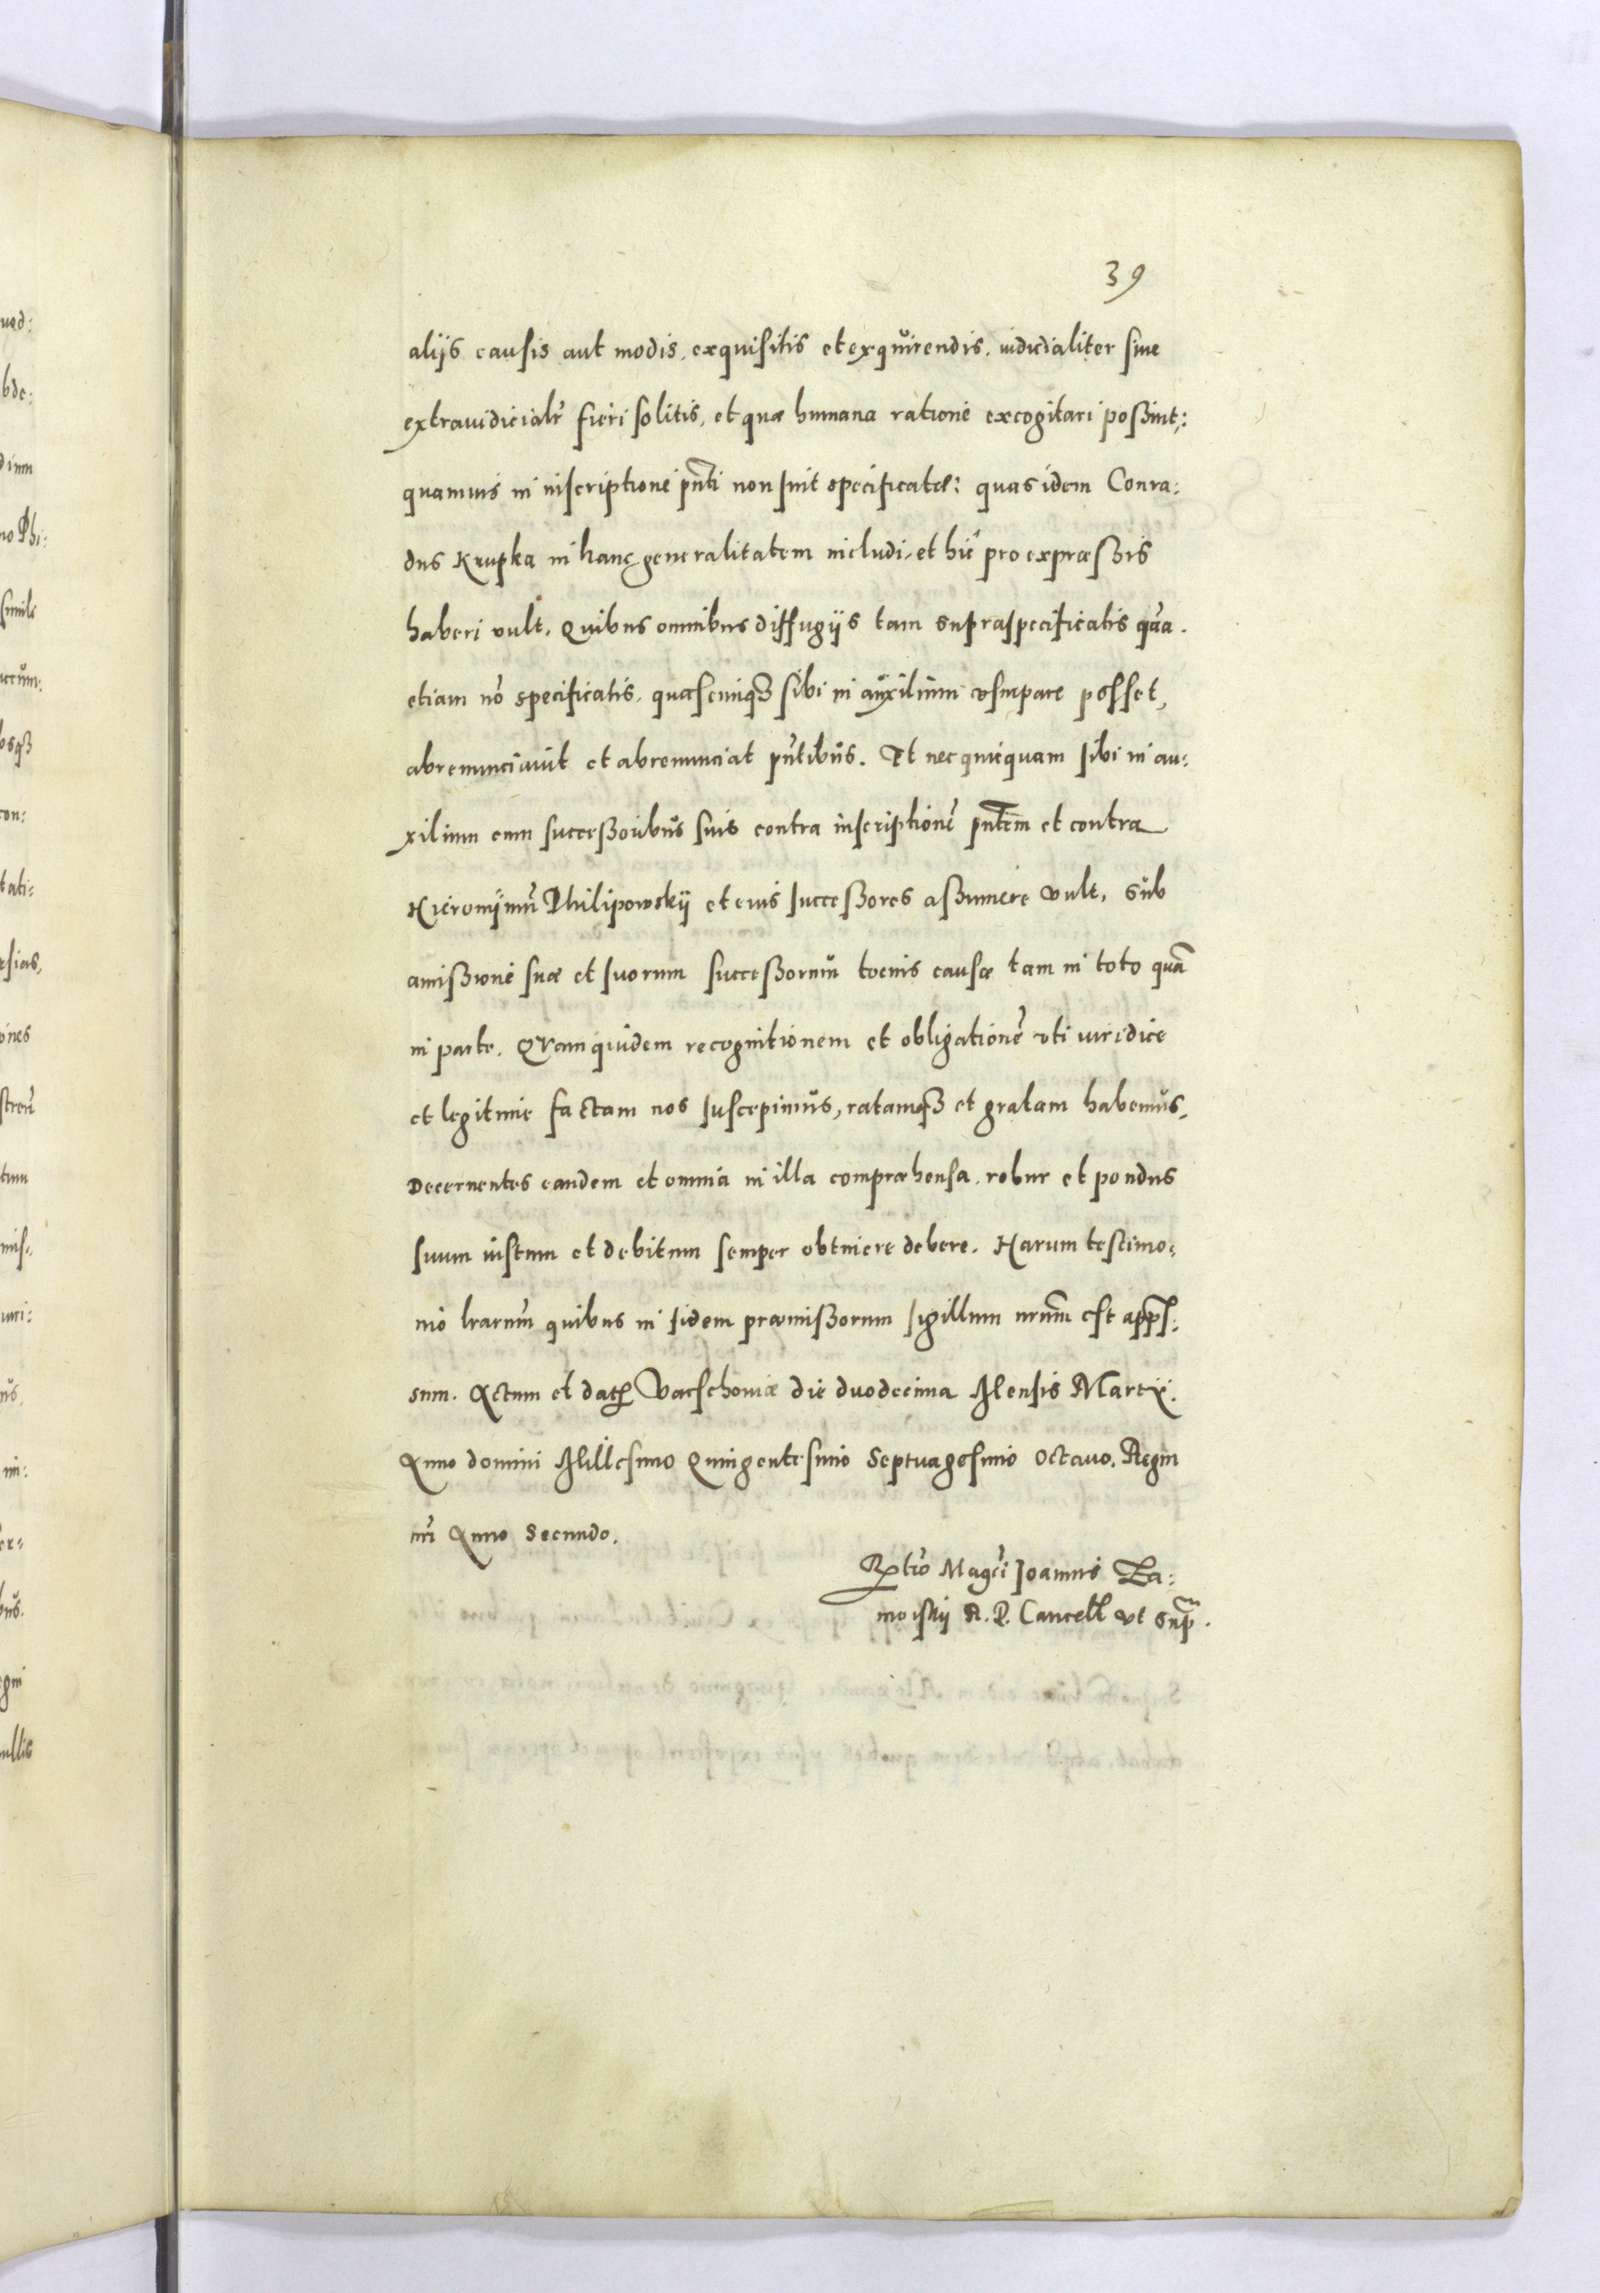 39
alijs causis aut modis, exquisitis et exquirendis, iudicialiter siue
extraiudicialr̃ fieri solitis, et quæ humana ratione excogitari poßint,:
quamuis in inscriptione pñti non sint specificatæ: quas idem Conra:
dus Krupka in hanc generalitatem includi, et hic pro expræßis
haberi vult. Quibus omnibus diffugijs tam supraspecificatis quã
etiam nõ specificatis, quæcunqȝ sibi in auxilium vsurpare posset,
abrenunciauit et abrenunciat pñtibus. Et nec quicquam sibi in au:
xilium cum succeßoribus suis contra inscriptionẽ pñtem et contra
Hieronijmũ Philipowskij et eius succeßores aßumere vult, sub
amißione suæ et suorum succeßorum tocius causæ tam in toto quã
in parte. Quam quidem recognitionem et obligationẽ vti iuridice
et legitime factam nos suscepimus, ratamqȝ et gratam habemus,
Decernentes eandem et omnia in illa compræhensa, robur et pondus
suum iustum et debitum semper obtinere debere. Harum testimo:
nio lrarum̃ quibus in fidem præmißorum sigillum nrũm est app̃s:
sum. Actum et dat Varschouiæ die duodecima Mensis Martij.
Anno domini Millesimo Quingentesimo Septuagesimo Octauo. Regni
nr̃i Anno Secundo.
Rtio Magci Joannis Za:
moiskij R. P. Cancell vt supr̃.
uod:
bde:
dium
no Phi:
simile
osqȝ
con:
tati:
rsias,
ones
mis:
unci:
in:
er:
bus.
egni
nullis